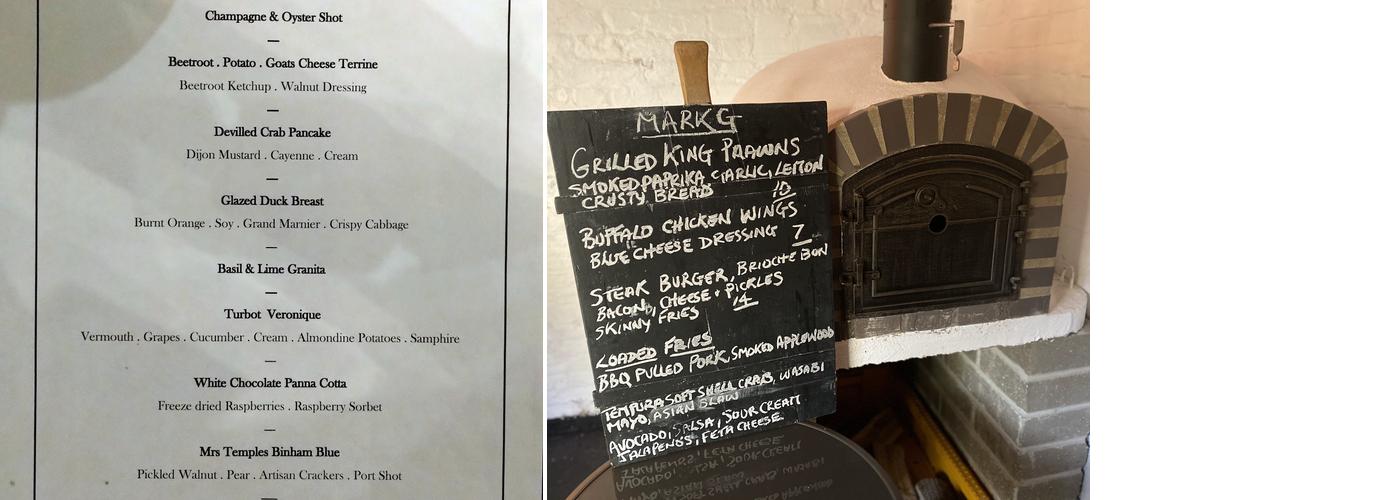 Champagne & Oyster Shot
—
Beetroot . Potato . Goats Cheese Terrine
Beetroot Ketchup . Walnut Dressing
—
Devilled Crab Pancake
Dijon Mustard . Cayenne . Cream
—
Glazed Duck Breast
Burnt Orange . Soy . Grand Marnier . Crispy Cabbage
—
Basil & Lime Granita
—
Turbot Veronique
Vermouth . Grapes . Cucumber . Cream . Almondine Potatoes . Samphire
—
White Chocolate Panna Cotta
Freeze dried Raspberries . Raspberry Sorbet
—
Mrs Temples Binham Blue
Pickled Walnut . Pear . Artisan Crackers . Port Shot
—
MARKG
GRILLED KING PRAWNS
SMOKED PAPRIKA GARLIC, LEMON
CRUSTY BREAD 10
BUFFALO CHICKEN WINGS
BLUE CHEESE DRESSING 7
STEAK BURGER, BRIOCHE BUN
BACON, CHEESE + PICKLES
SKINNY FRIES 14
LOADED FRIES
BBQ PULLED PORK, SMOKED APPLEWOOD
TEMPURA SOFT SHELL CRAB, WASABI
MAYO, ASIAN SLAW
AVOCADO, SALSA, SOUR CREAM
JALAPENO'S, FETA CHEESE